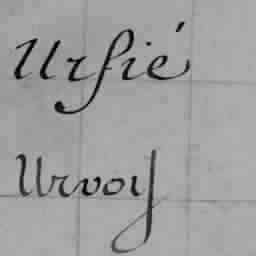 Urſié
Urvoy